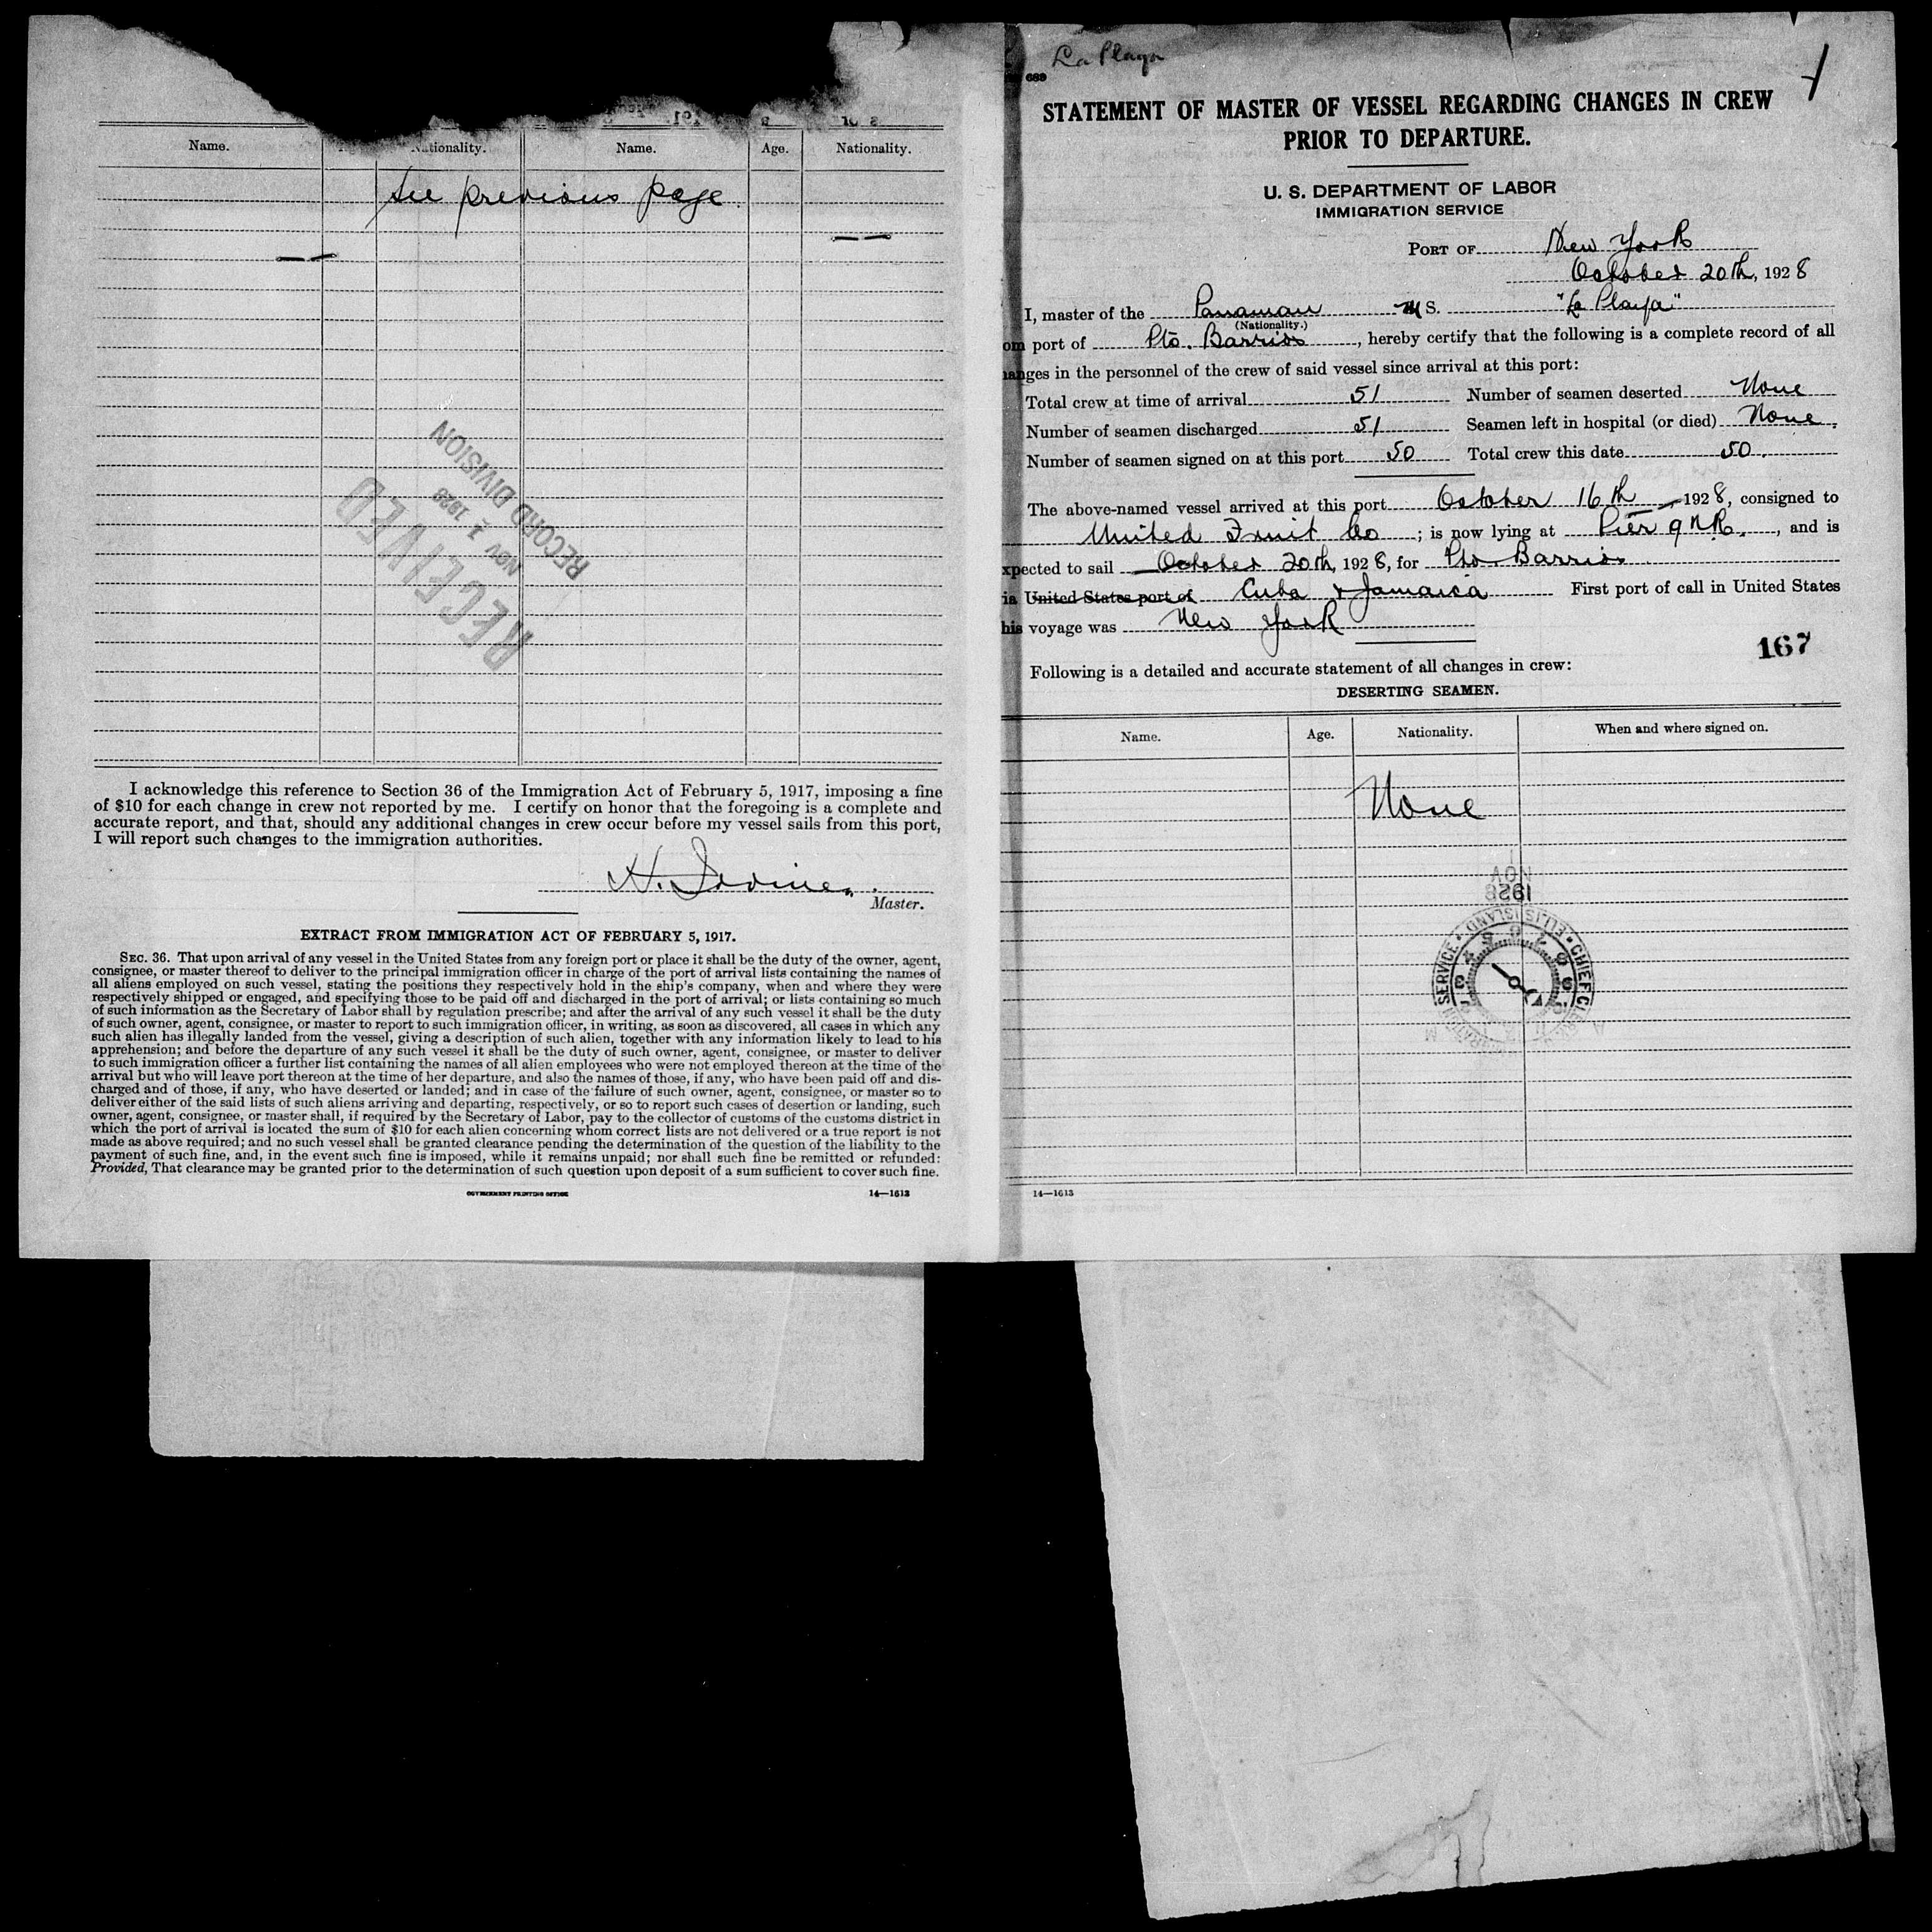 Name.
Nationality.
Name.
Age.
Nationality.
See previous page
RECEIVED
NOV 1 1928
RECORD DIVISION
I acknowledge this reference to Section 36 of the Immigration Act of February 5, 1917, imposing a fine
of $10 for each change in crew not reported by me. I certify on honor that the foregoing is a complete and
accurate report, and that, should any additional changes in crew occur before my vessel sails from this port,
I will report such changes to the immigration authorities.
H. Irvine.
Master.
EXTRACT FROM IMMIGRATION ACT OF FEBRUARY 5, 1917.
SEC. 36. That upon arrival of any vessel in the United States from any foreign port or place it shall be the duty of the owner, agent,
consignee, or master thereof to deliver to the principal immigration officer in charge of the port of arrival lists containing the names of
all aliens employed on such vessel, stating the positions they respectively hold in the ship's company, when and where they were
respectively shipped or engaged, and specifying those to be paid off and discharged in the port of arrival; or lists containing so much
of such information as the Secretary of Labor shall by regulation prescribe; and after the arrival of any such vessel it shall be the duty
of such owner, agent, consignee, or master to report to such immigration officer, in writing, as soon as discovered, all cases in which any
such alien has illegally landed from the vessel, giving a description of such alien, together with any information likely to lead to his
apprehension; and before the departure of any such vessel it shall be the duty of such owner, agent, consignee, or master to deliver
to such immigration officer a further list containing the names of all alien employees who were not employed thereon at the time of the
arrival but who will leave port thereon at the time of her departure, and also the names of those, if any, who have been paid off and dis-
charged and of those, if any, who have deserted or landed; and in case of the failure of such owner, agent, consignee, or master so to
deliver either of the said lists of such aliens arriving and departing, respectively, or so to report such cases of desertion or landing, such
owner, agent, consignee, or master shall, if required by the Secretary of Labor, pay to the collector of customs of the customs district in
which the port of arrival is located the sum of $10 for each alien concerning whom correct lists are not delivered or a true report is not
made as above required; and no such vessel shall be granted clearance pending the determination of the question of the liability to the
payment of such fine, and, in the event such fine is imposed, while it remains unpaid; nor shall such fine be remitted or refunded:
Provided, That clearance may be granted prior to the determination of such question upon deposit of a sum sufficient to cover such fine.
GOVERNMENT PRINTING OFFICE
14—1613
La Playa
689
STATEMENT OF MASTER OF VESSEL REGARDING CHANGES IN CREW
PRIOR TO DEPARTURE.
U. S. DEPARTMENT OF LABOR
IMMIGRATION SERVICE
PORT OF New York
October 20th, 1928
I, master of the Panaman M S. "La Playa"
(Nationality.)
om port of Pto. Barrios, hereby certify that the following is a complete record of all
anges in the personnel of the crew of said vessel since arrival at this port:
Total crew at time of arrival 51 Number of seamen deserted None
Number of seamen discharged 51 Seamen left in hospital (or died) None.
Number of seamen signed on at this port 50 Total crew this date 50.
The above-named vessel arrived at this port October 16th 1928, consigned to
United Fruit Co; is now lying at Pier 9 N.R., and is
xpected to sail October 20th, 1928, for Pto Barrios
ia United States port of Cuba & Jamaica First port of call in United States
his voyage was New York
167
Following is a detailed and accurate statement of all changes in crew:
DESERTING SEAMEN.
Name.
Age.
Nationality.
When and where signed on.
None
NOV
1928
ELLIS ISLAND
SERVICE
CHIEF
14—1613